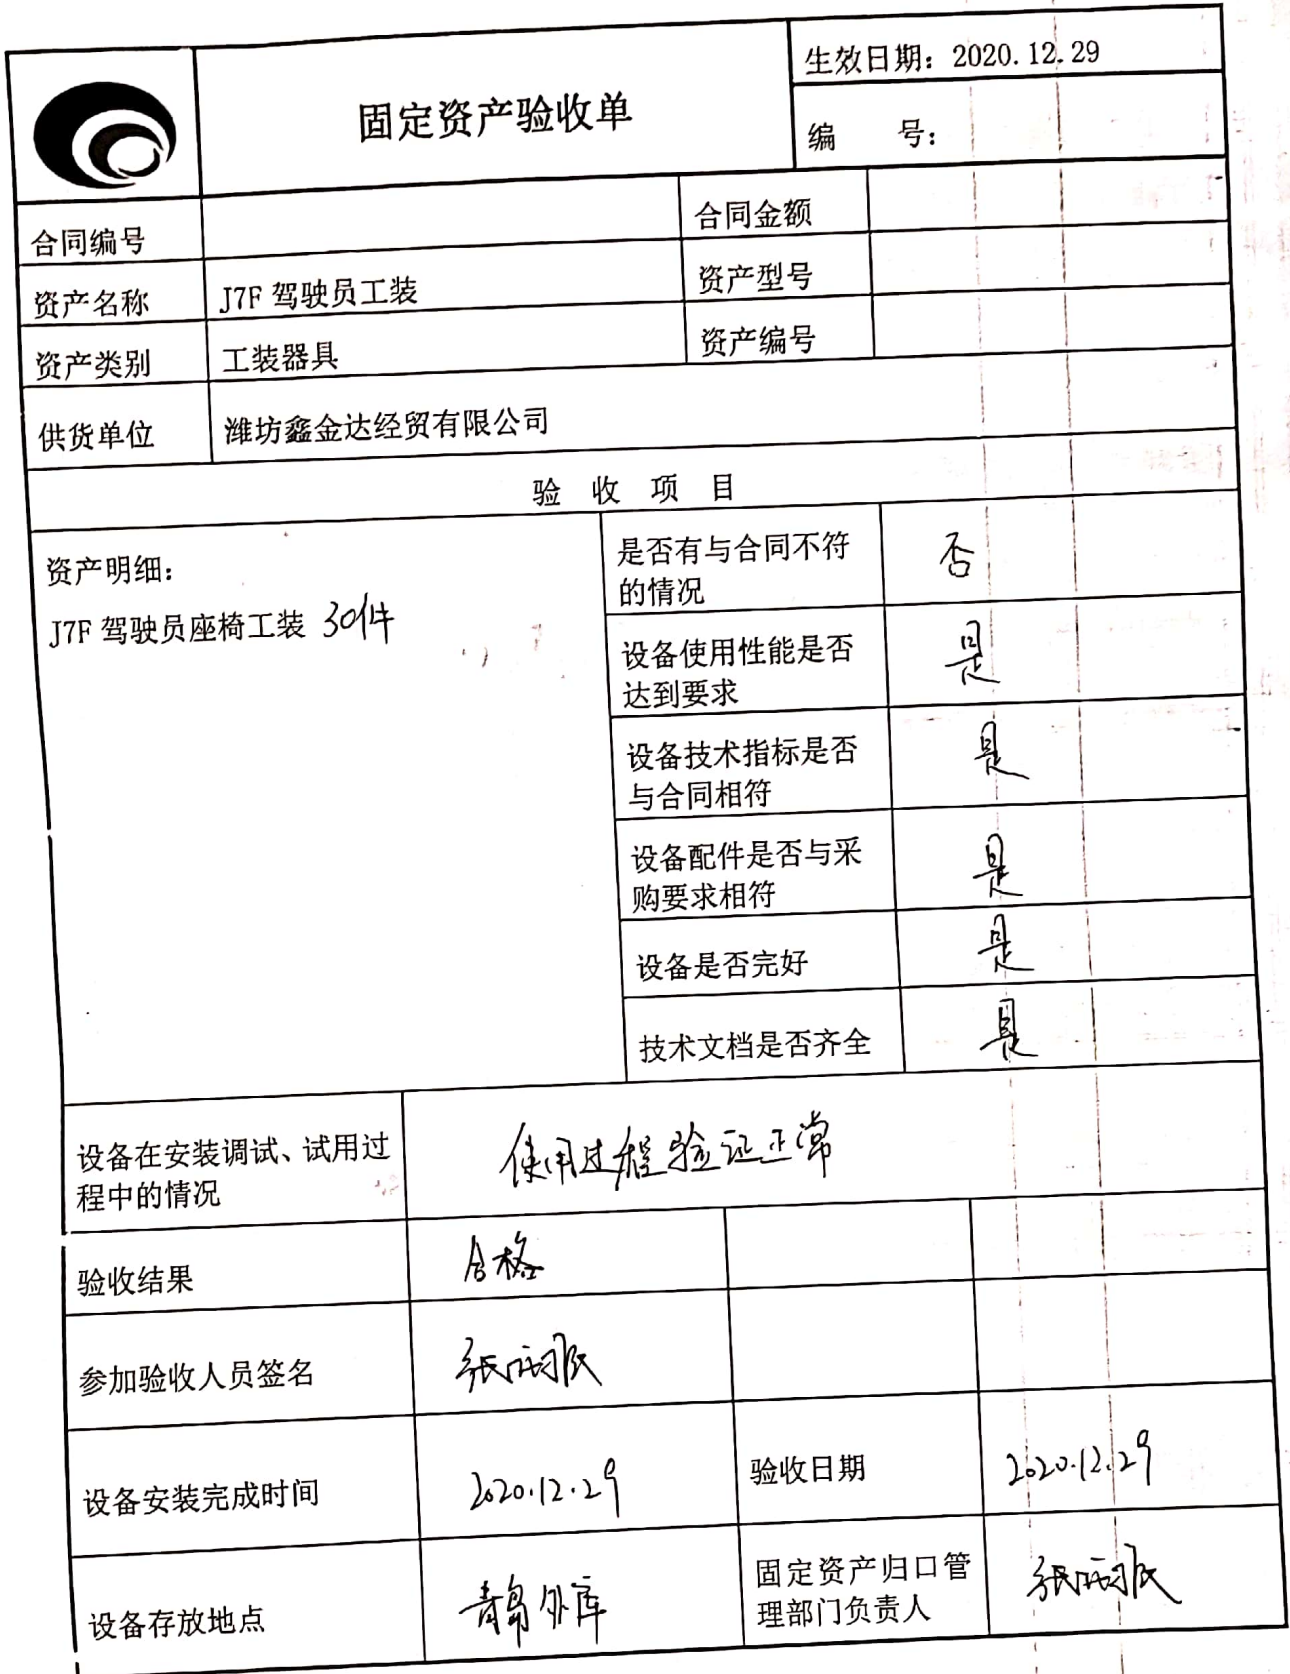 固定资产验收单
生效日期：2020.12.29
编 号：
合同编号
合同金额
资产名称
J7F 驾驶员工装
资产型号
资产类别
工装器具
资产编号
供货单位
潍坊鑫金达经贸有限公司
验 收 项 目
资产明细：
J7F 驾驶员座椅工装 30件
是否有与合同不符
的情况
否
设备使用性能是否
达到要求
是
设备技术指标是否
与合同相符
是
设备配件是否与采
购要求相符
是
设备是否完好
是
技术文档是否齐全
是
设备在安装调试、试用过
程中的情况
使用过程验证正常
验收结果
合格
参加验收人员签名
设备安装完成时间
2020.12.29
验收日期
2020.12.29
设备存放地点
青岛外库
固定资产归口管
理部门负责人